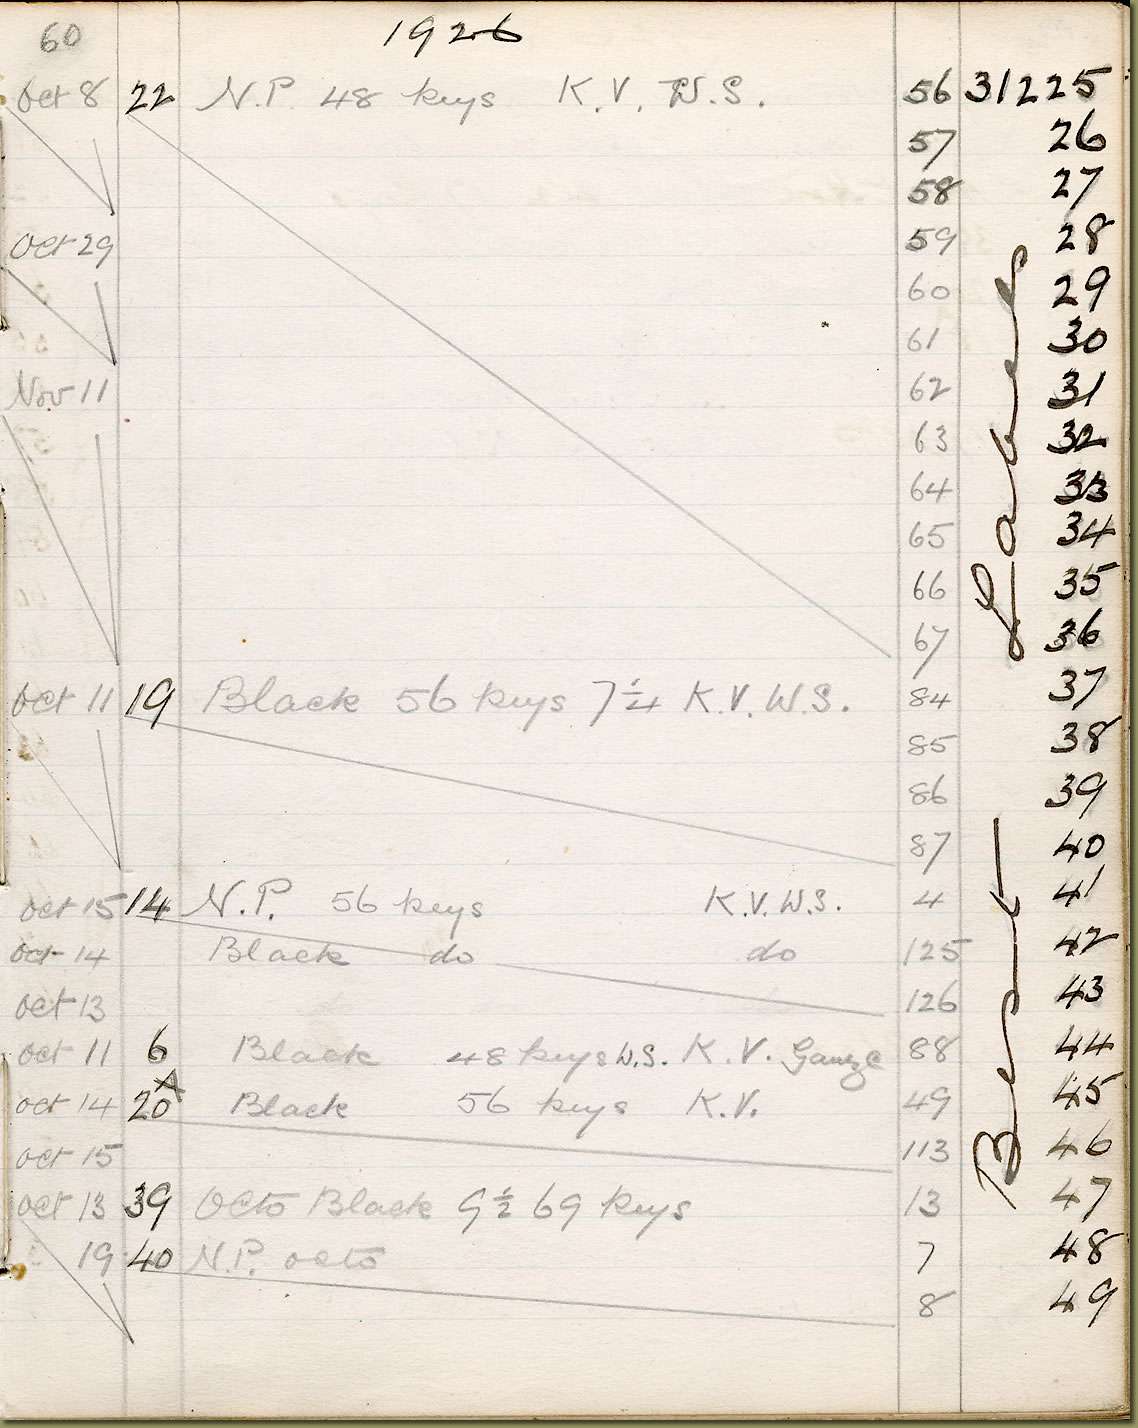 60 1926
Oct 8 22 N.P. 48 keys K.V. W.S. 56 31225
57 26
58 27
Oct 29 59 28
60 29
61 30
Nov 11 62 31
63 32
64 33
65 34
66 35
67 36
Oct 11 19 Black 56 keys 7 1/4 K.V. W.S. 84 37
85 38
86 39
87 40
Oct 15 14 N.P. 56 keys K.V. W.S. 4 41
Oct 14 Black do do 125 42
Oct 13 126 43
Oct 11 6 Black 48 keys W.S. K.V. Gauze 88 44
Oct 14 20A Black 56 keys K.V. 49 45
Oct 15 113 46
Oct 13 39 Octo Black 9 1/2 69 keys 13 47
19 40 N.P. octo 7 48
8 49
Best Labels